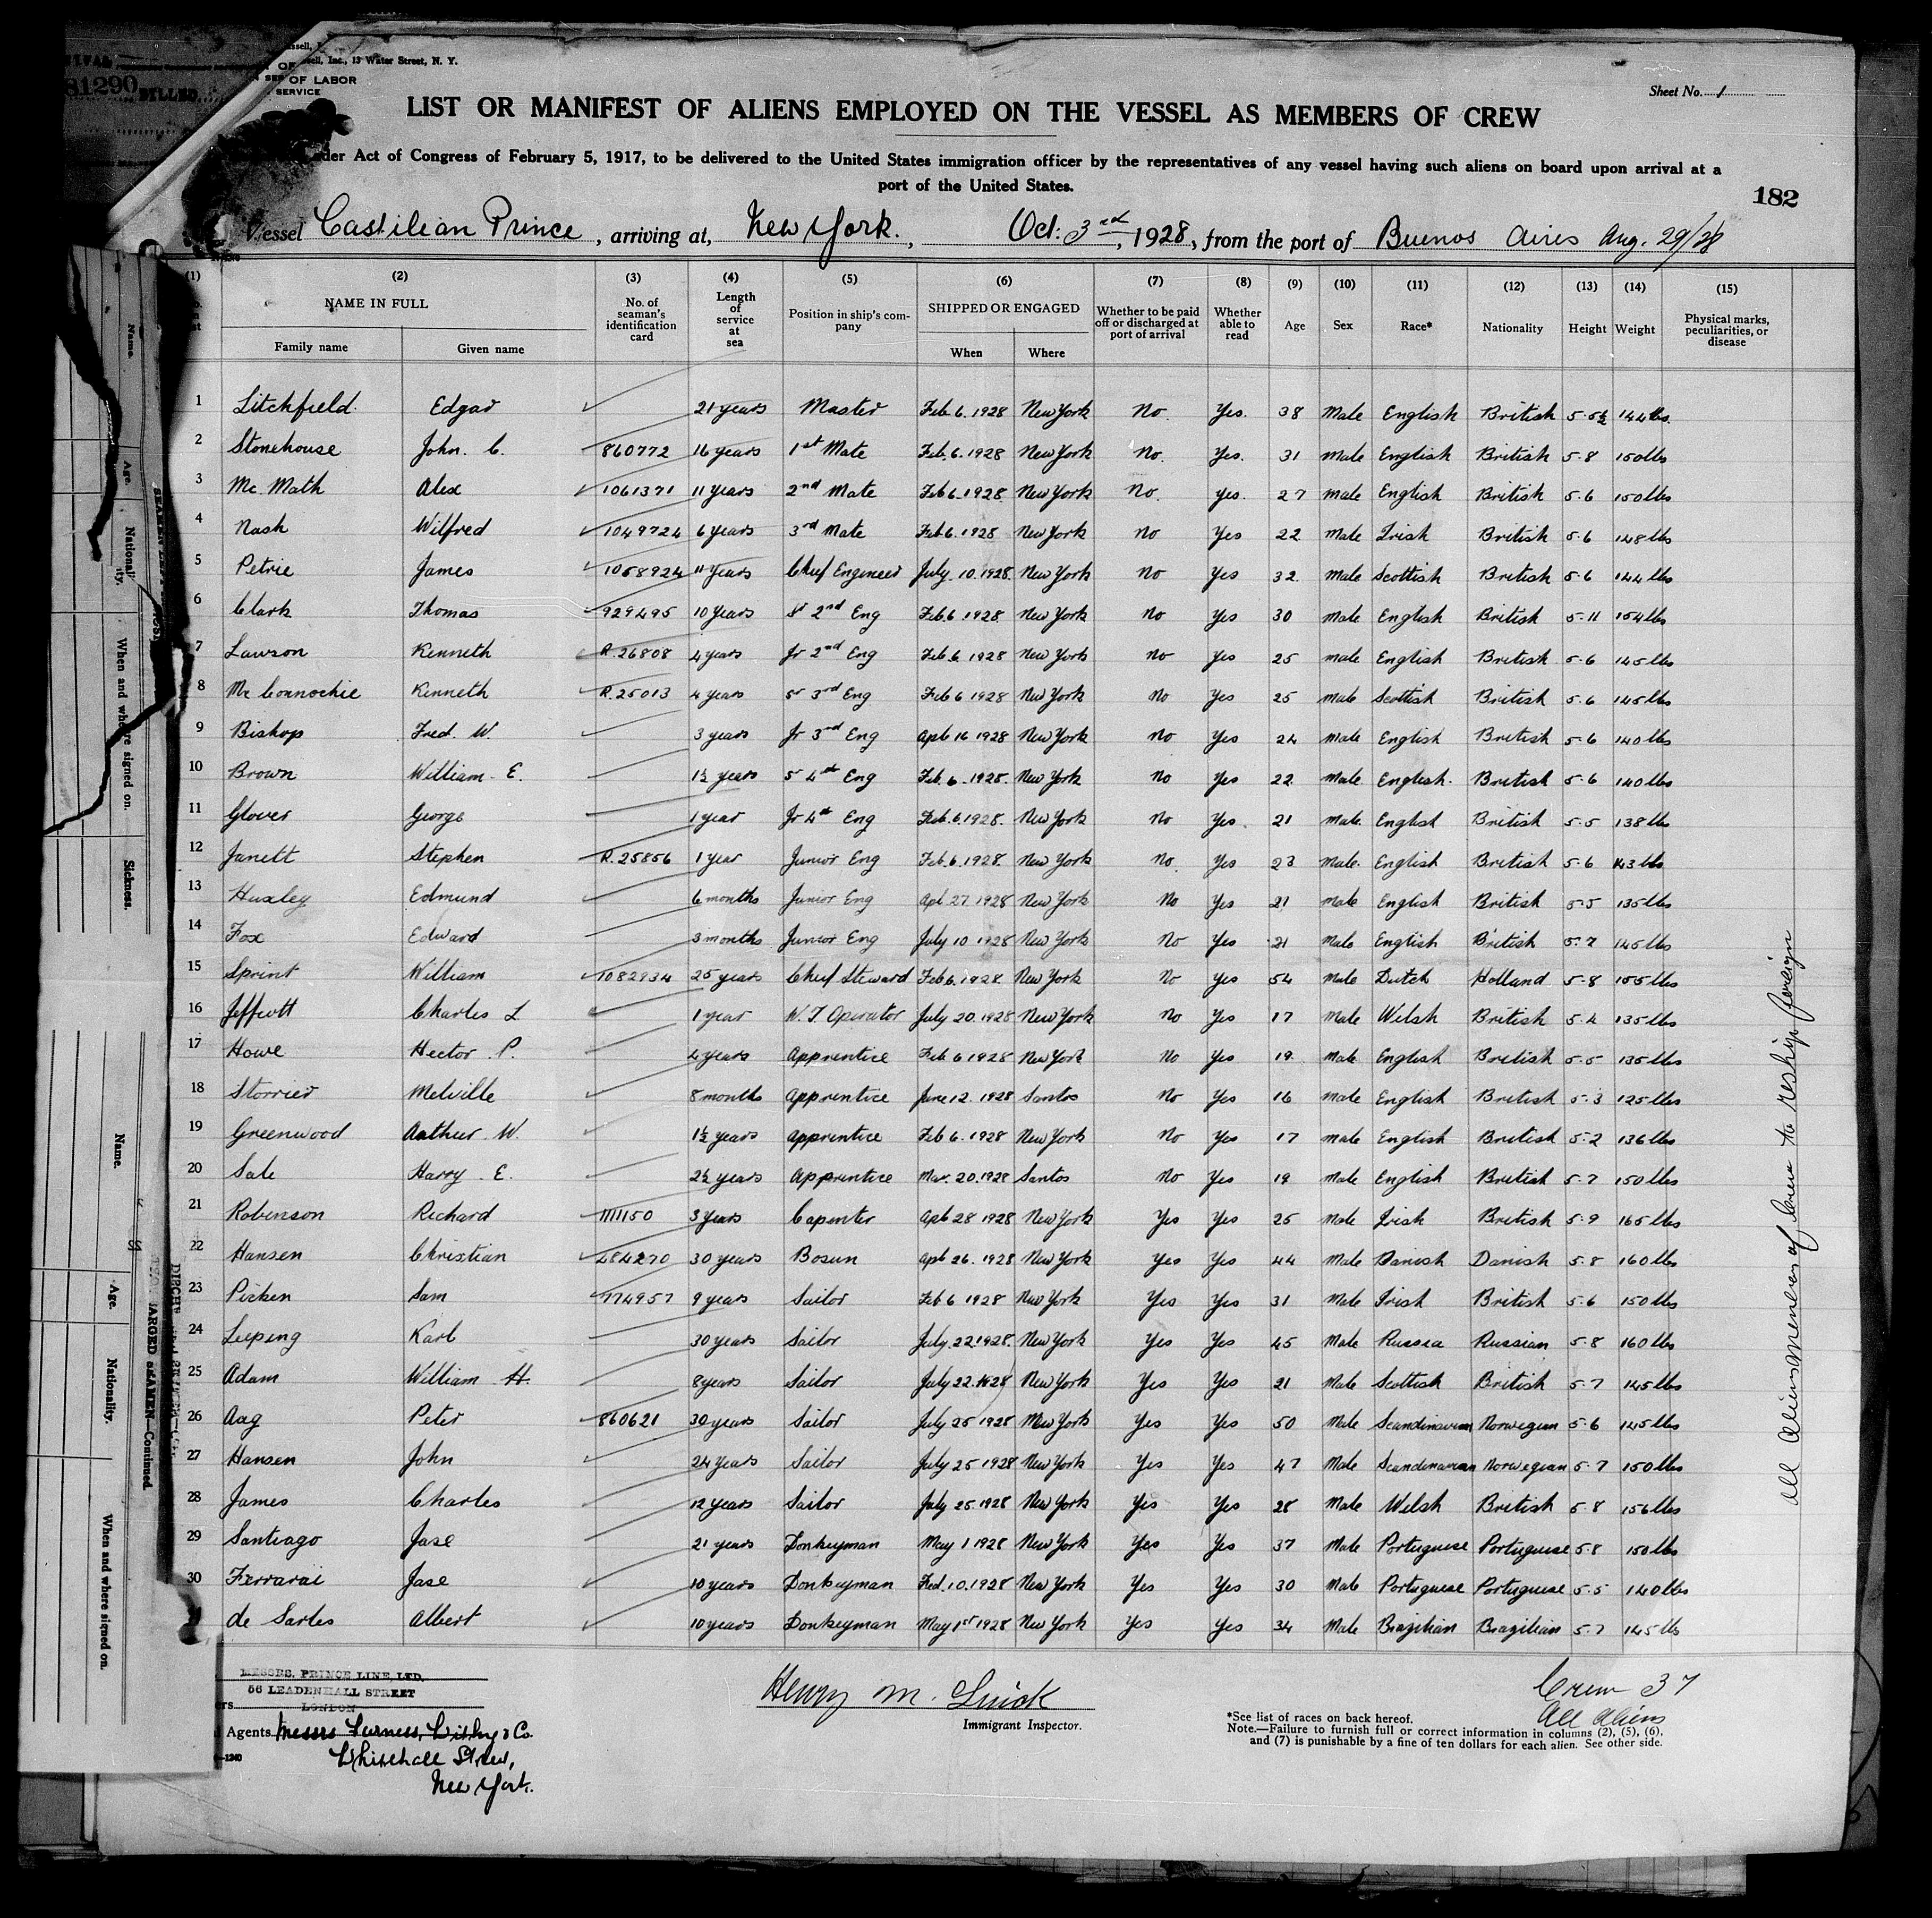 81290
BILLED
13 Water Street, N. Y.
OF LABOR
SERVICE
Sheet No. 1
LIST OR MANIFEST OF ALIENS EMPLOYED ON THE VESSEL AS MEMBERS OF CREW
Act of Congress of February 5, 1917, to be delivered to the United States immigration officer by the representatives of any vessel having such aliens on board upon arrival at a
port of the United States.
182
Vessel Castilian Prince, arriving at, New York., Oct: 3rd, 1928, from the port of Buenos Aires Aug. 29/28
(1) (2) (3) (4) (5) (6) (7) (8) (9) (10) (11) (12) (13) (14) (15)
NAME IN FULL Family name Given name No. of seaman's identification card Length of service at sea Position in ship's company SHIPPED OR ENGAGED When Where Whether to be paid off or discharged at port of arrival Whether able to read Age Sex Race* Nationality Height Weight Physical marks, peculiarities, or disease
1 Litchfield Edgar 21 years Master Feb. 6. 1928 New York No. Yes. 38 Male English British 5-5½ 144 lbs.
2 Stonehouse John. C. 860772 16 years 1st Mate Feb. 6. 1928 New York No. Yes. 31 Male English British 5-8 150 lbs
3 Mc. Math Alex 1061371 11 years 2nd Mate Feb 6. 1928. New York No. Yes. 27 Male English British 5-6 150 lbs
4 Nash Wilfred 1049724 6 years 3rd Mate Feb. 6. 1928 New York No Yes 22 Male Irish British 5-6 148 lbs
5 Petrie James 1058924 11 years Chief Engineer July. 10. 1928. New York No Yes 32 Male Scottish British 5-6 144 lbs
6 Clark Thomas 929495 10 years Sr 2nd Eng Feb. 6. 1928. New York No Yes 30 Male English British 5-11 154 lbs
7 Lawson Kenneth R. 26808 4 years Jr 2nd Eng Feb. 6. 1928 New York No Yes 25 Male English British 5-6 145 lbs
8 Mc Connochie Kenneth R. 25013 4 years Sr 3rd Eng Feb 6 1928 New York No Yes 25 Male Scottish British 5-6 145 lbs
9 Bishop Fred. W. 3 years Jr 3rd Eng Apl. 16 1928 New York No Yes 24 Male English British 5-6 140 lbs
10 Brown William E. 1½ years S 4th Eng Feb. 6. 1928. New York No Yes 22 Male English. British 5-6 140 lbs
11 Glover George 1 year Jr 4th Eng Feb. 6. 1928. New York No Yes 21 Male English British 5-5 138 lbs
12 Janett Stephen R. 25856 1 year Junior Eng Feb. 6. 1928. New York No. Yes 23 Male. English British 5-6 143 lbs
13 Huxley Edmund 6 months Junior Eng Apl. 27. 1928 New York No Yes 21 Male English British 5-5 135 lbs
14 Fox Edward 3 months Junior Eng July 10 1928 New York No Yes 21 Male English British 5-7 145 lbs
15 Sprint William 1082934 25 years Chief Steward Feb. 6. 1928. New York No Yes 54 Male Dutch Holland 5-8 155 lbs
16 Jeffcott Charles L 1 year W. T. Operator July 20. 1928 New York No Yes 17 Male Welsh British 5-4 135 lbs
17 Howe Hector. P. 4 years Apprentice Feb 6 1928 New York No Yes 19 Male English British 5-5 135 lbs
18 Storrier Melville 8 months Apprentice June 12. 1928 Santos No Yes 16 Male English British 5-3 125 lbs
19 Greenwood Arthur. W. 1½ years Apprentice Feb 6. 1928 New York No Yes 17 Male English British 5-2 136 lbs
20 Sale Harry. E. 2½ years Apprentice Mar. 20. 1928 Santos No Yes 19 Male English British 5-7 150 lbs
21 Robinson Richard 1111150 3 years Capenter Apl 28 1928 New York Yes Yes 25 Male Irish British 5-9 165 lbs
22 Hansen Christian 484270 30 years Bosun Apl 26. 1928 New York Yes Yes 44 Male Danish Danish 5-8 160 lbs
23 Picken Sam 774957 9 years Sailor Feb 6 1928 New York Yes Yes 31 Male Irish British 5-6 150 lbs
24 Leeping Karl 30 years Sailor July. 22. 1928. New York Yes Yes 45 Male Russia Russian 5-8 160 lbs
25 Adam William H. 8 years Sailor July 22. 1928 New York Yes Yes 21 Male Scottish British 5-7 145 lbs
26 Aag Peter 860621 30 years Sailor July 25 1928 New York Yes Yes 50 Male Scandinavian Norwegian 5-6 145 lbs
27 Hansen John 24 years Sailor July 25 1928 New York Yes Yes 47 Male Scandinavian Norwegian 5-7 150 lbs
28 James Charles 12 years Sailor July 25. 1928 New York Yes Yes 28 Male Welsh British 5-8 156 lbs
29 Santiago Jase 21 years Donkeyman May 1 1928 New York Yes Yes 37 Male Portuguese Portuguese 5-8 150 lbs
30 Ferrarai Jase 10 years Donkeyman Fed. 10. 1928 New York Yes Yes 30 Male Portuguese Portuguese 5-5 140 lbs
de Sarles Albert 10 years Donkeyman May 1st 1928 New York Yes Yes 34 Male Brazilian Brazilian 5-7 145 lbs
All Aliens Members of Crew to reship foreign
MESSRS. PRINCE LINE, LTD.
56 LEADENHALL STREET
LONDON
Agents Messrs Furness, Withy & Co.
Whitehall Street,
New York.
Henry M.
Immigrant Inspector.
Crew 37
All Aliens
*See list of races on back hereof.
Note.—Failure to furnish full or correct information in columns (2), (5), (6),
and (7) is punishable by a fine of ten dollars for each alien. See other side.
Name.
Age.
Nationality.
When and where signed on.
Sickness.
Name.
Age.
Nationality.
When and where signed on.
SEAMEN—Continued.